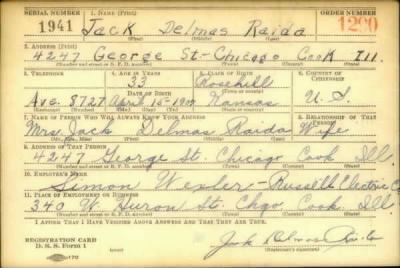 SERIAL NUMBER 1. NAME (Print) ORDER NUMBER
1941 Jack Delmas Raida 1200
(First) (Middle) (Last)
2. ADDRESS (Print)
4247 George St - Chicago Cook Ill.
(Number and street or R. F. D. number) (Town) (County) (State)
3. TELEPHONE 4. AGE IN YEARS 5. PLACE OF BIRTH 6. COUNTRY OF CITIZENSHIP
33 Rosehill
DATE OF BIRTH (Town or county)
Ave. 8727 April 15-1907 Kansas U. S.
(Exchange) (No.) (Mo.) (Day) (Yr.) (State or country)
7. NAME OF PERSON WHO WILL ALWAYS KNOW YOUR ADDRESS 8. RELATIONSHIP OF THAT PERSON
Mrs. Jack Delmas Raida Wife
(Mr., Mrs., Miss) (First) (Middle) (Last)
9. ADDRESS OF THAT PERSON
4247 George St. Chicago Cook Ill
(Number and street or R. F. D. number) (Town) (County) (State)
10. EMPLOYER'S NAME
Simon Wexler - Russell Electric Co
11. PLACE OF EMPLOYMENT OR BUSINESS
340 W. Huron St. Chgo. Cook Ill
(Number and street or R. F. D. number) (Town) (County) (State)
I AFFIRM THAT I HAVE VERIFIED ABOVE ANSWERS AND THAT THEY ARE TRUE.
REGISTRATION CARD
D. S. S. Form 1 Jack Delmas Raida
(Registrant's signature)